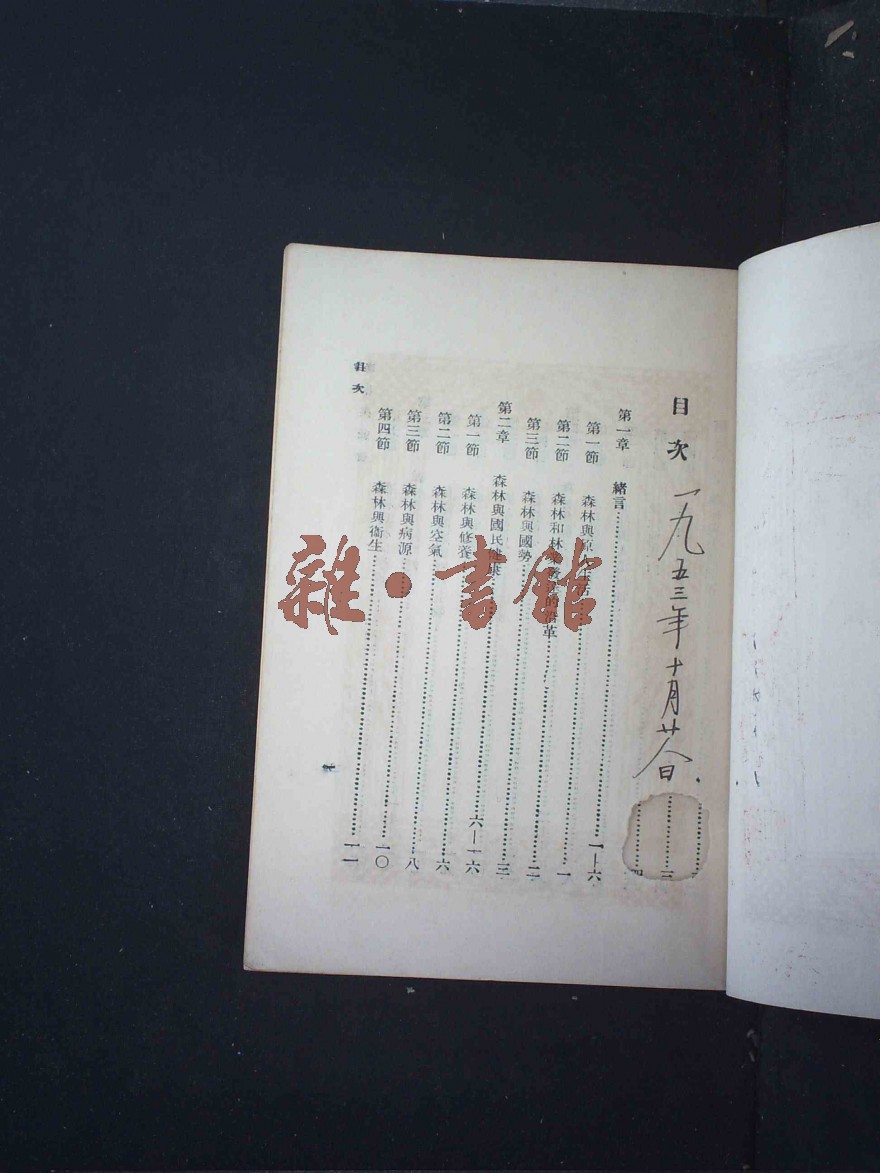 目次
一九五三年十月廿日
第一章 緒言……一—六
第一節 森林與原生活……一
第二節 森林和林的沿革……二
第三節 森林與國勢……三
第二章 森林與國民健康……六—一六
第一節 森林與修養……六
第二節 森林與空氣……八
第三節 森林與病源……一〇
第四節 森林與衞生……一一
目次
三
四
雜·書館